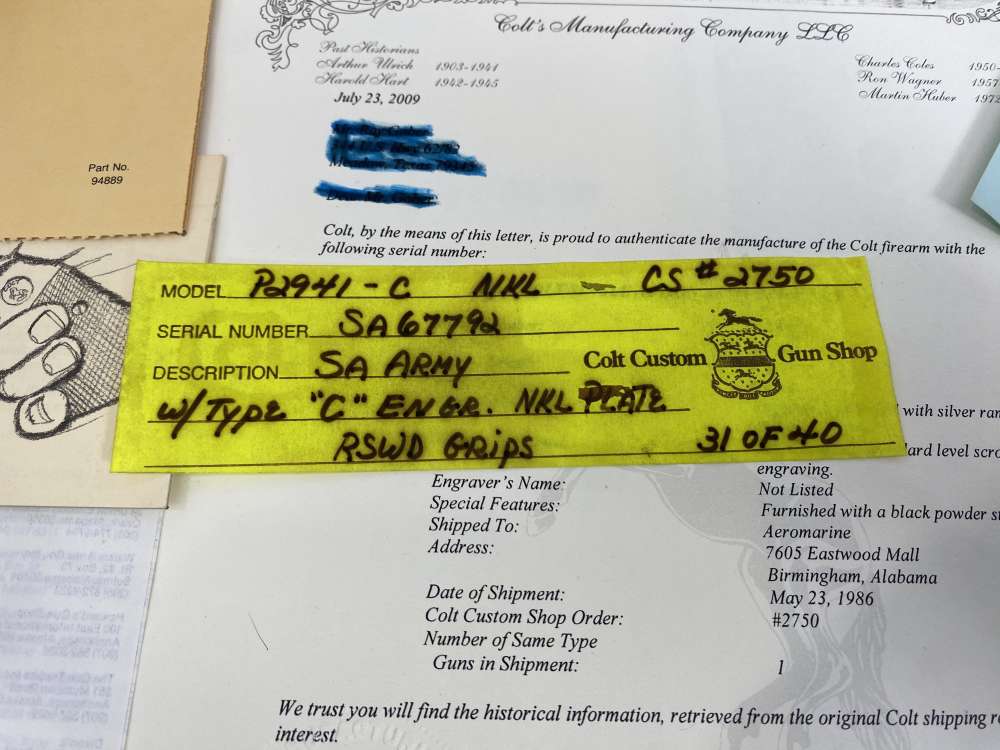 Colt's Manufacturing Company LLC
Past Historians
Arthur Ulrich 1903-1941
Harold Hart 1942-1945
Charles Coles 1950-
Ron Wagner 1957
Martin Huber 1972
July 23, 2009
Part No.
94889
Colt, by the means of this letter, is proud to authenticate the manufacture of the Colt firearm with the
following serial number:
MODEL P2941-C NKL CS # 2750
SERIAL NUMBER SA67792
DESCRIPTION SA ARMY
Colt Custom Gun Shop
W/TYPE "C" ENGR. NKL PLATE
RSWD GRIPS 31 OF 40
with silver
engraving.
Engraver's Name: Not Listed
Special Features: Furnished with a black powder
Shipped To: Aeromarine
Address: 7605 Eastwood Mall
Birmingham, Alabama
Date of Shipment: May 23, 1986
Colt Custom Shop Order: #2750
Number of Same Type
Guns in Shipment: 1
We trust you will find the historical information, retrieved from the original Colt shipping
interest.